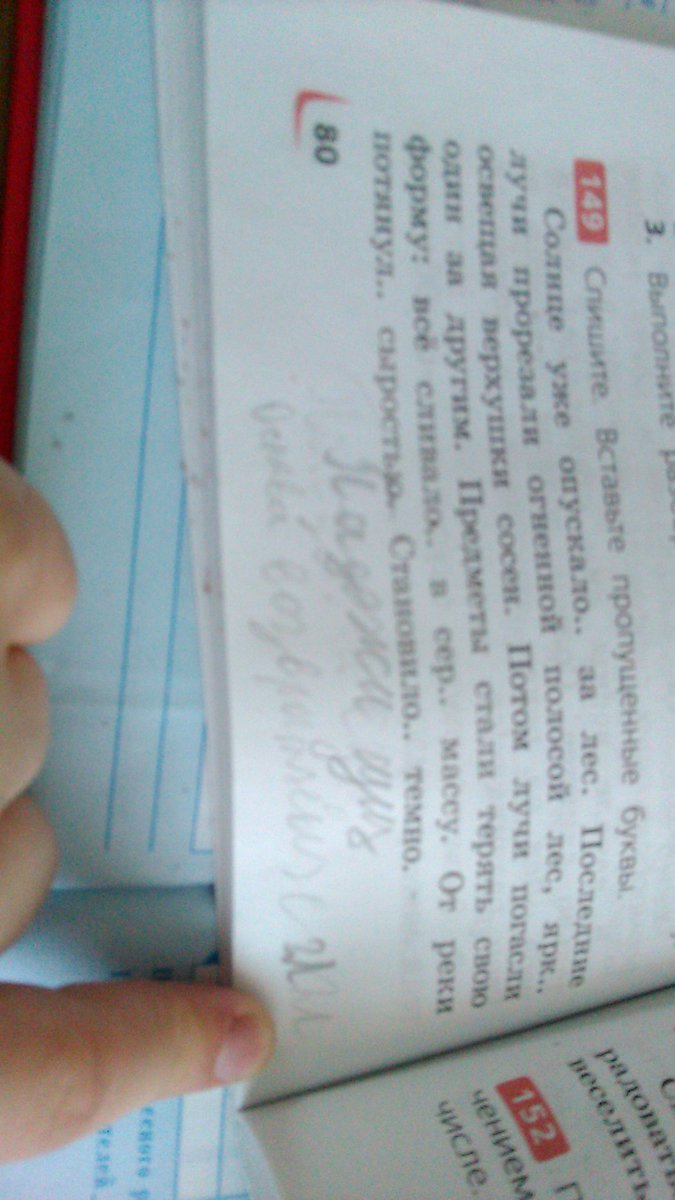 3. Выполните
149 Спишите. Вставьте пропущенные буквы.
Солнце уже опускало.. за лес. Последние
лучи прорезали огненной полосой лес, ярк..
освещая верхушки сосен. Потом лучи погасли
один за другим. Предметы стали терять свою
форму: всё сливало.. в сер.. массу. От реки
потянул.. сыростью. Становило.. темно.
80
радовать
веселить
152
чением
числе.